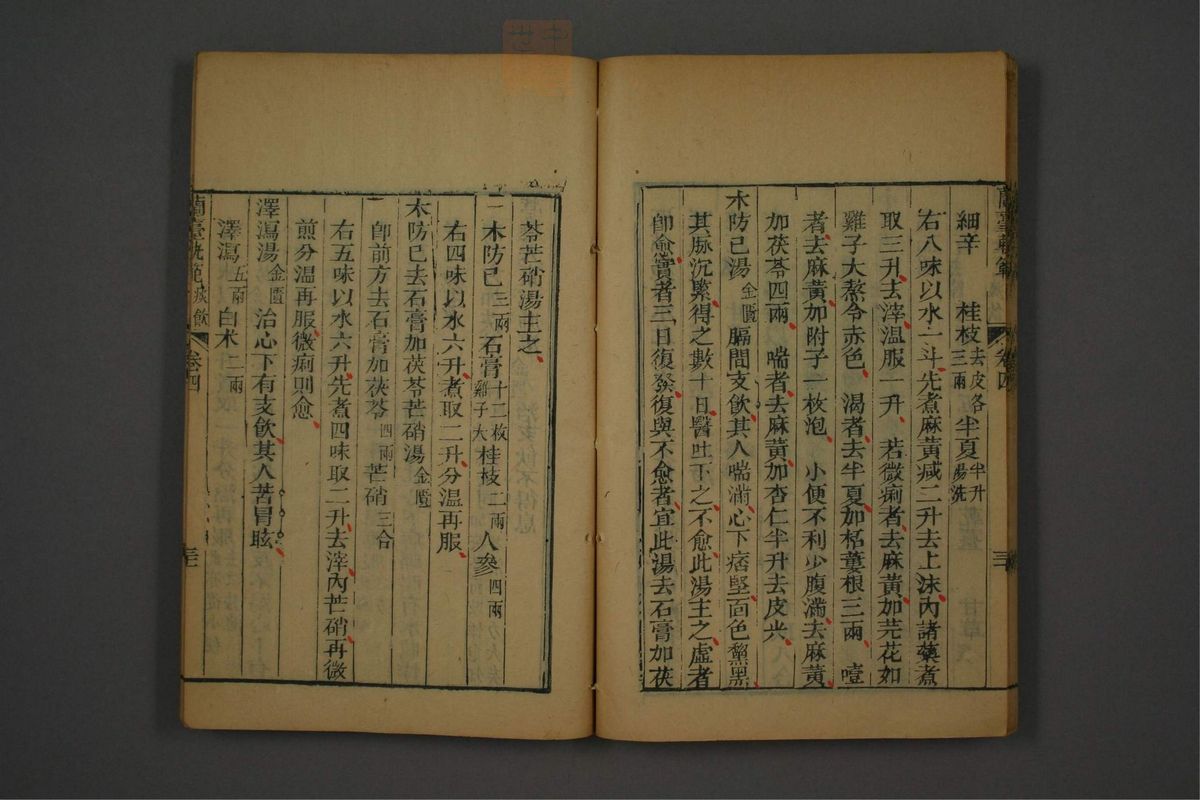 細辛　桂枝去皮各三兩半夏半升湯洗
右八味以水一斗先煮麻黃減二升去上沫內諸藥煮
取三升去滓溫服一升　若微痢者去麻黃加芫花如
雞子大熬令赤色　渴者去半夏加栝蔞根三兩　噎
者去麻黃加附子一枚泡　小便不利少腹滿去麻黃
加茯苓四兩　喘者去麻黃加杏仁半升去皮尖
木防已湯金匱膈間支飲其人喘滿心下痞堅面色黧黑
其脉沉緊得之數十日醫吐下之不愈此湯主之虛者
卽愈實者三日復發復與不愈者宜此湯去石膏加茯
苓芒硝湯主之
木防已三兩石膏十二枚雞子大桂枝二兩人參四兩
右四味以水六升煮取二升分溫再服
木防已去石膏加茯苓芒硝湯金匱
卽前方去石膏加茯苓四兩芒硝三合
右五味以水六升先煮四味取二升去滓內芒硝再微
煎分溫再服微痢則愈
澤瀉湯金匱　治心下有支飲其人苦冒眩
澤瀉五兩白朮二兩
蘭臺軌範　痰飲　卷四